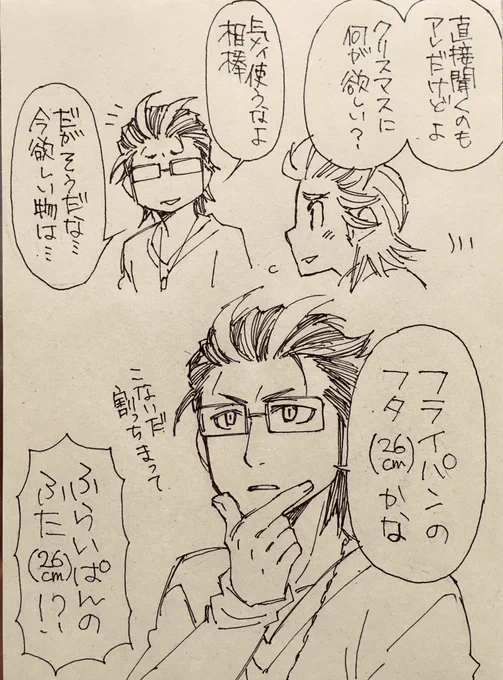 直接聞くのも
アレだけどよ
クリスマスに
何が欲しい？
気ィ使うなよ
相棒
だがそうだな…
今欲しい物は…
フライパンの
フタ(26cm)かな
こないだ
割っちまって
ふらいぱんの
ふた(26cm)!?